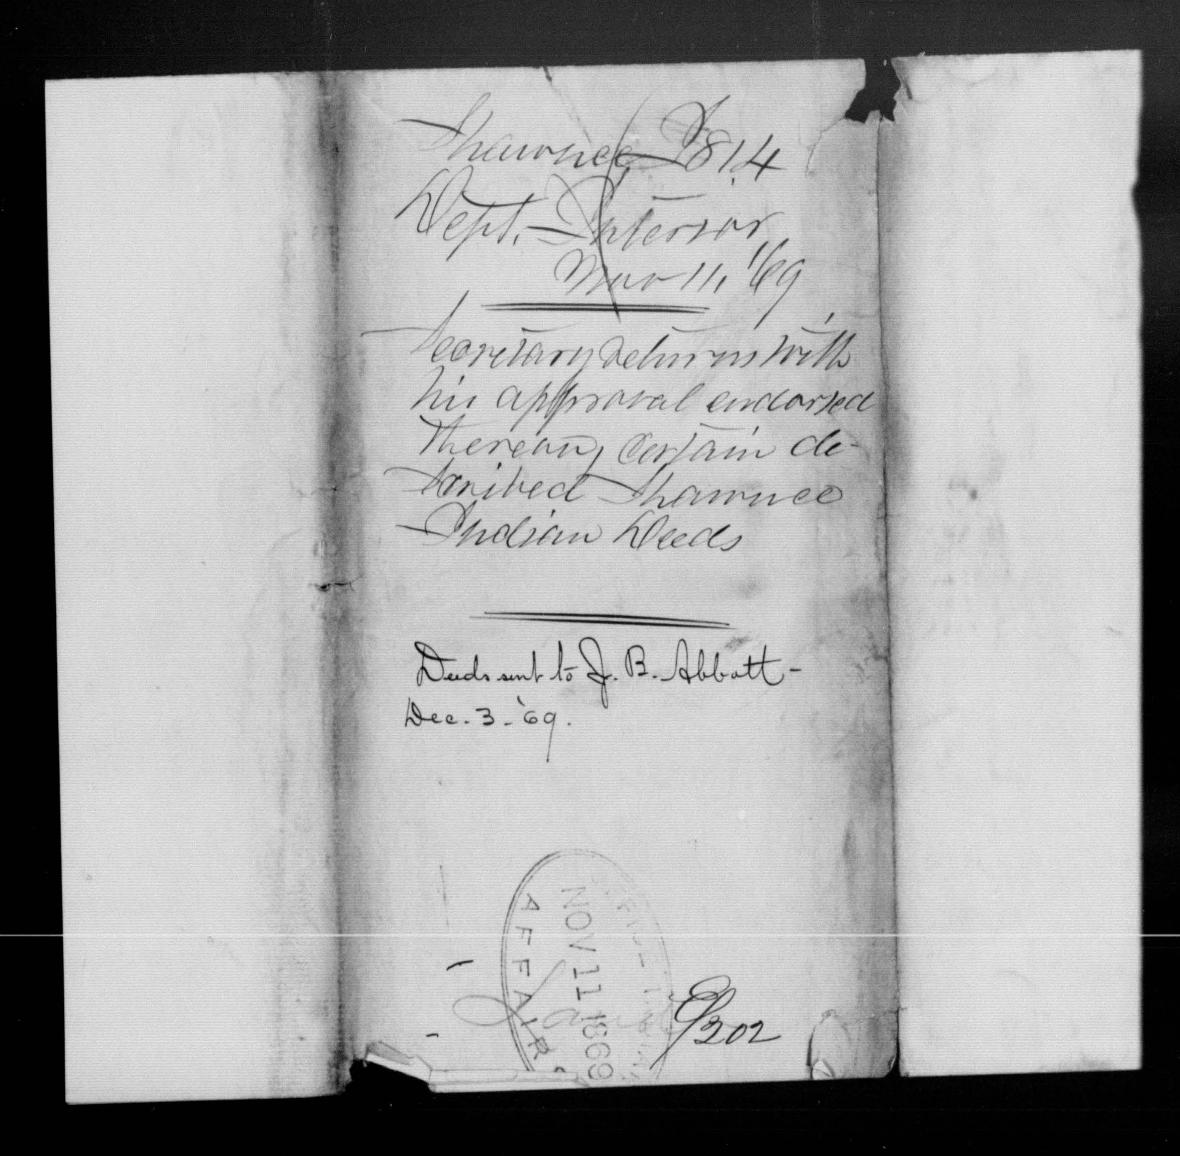 Shawnee I814
Dept. Interior
Nov 11, '69
Secretary returns with
his approval endorsed
thereon, certain de-
scribed Shawnee
Indian Deeds
Deeds sent to J. B. Abbott -
Dec. 3 - '69.
OFFICE INDIAN
NOV 11 1869
AFFAIRS
Land
202